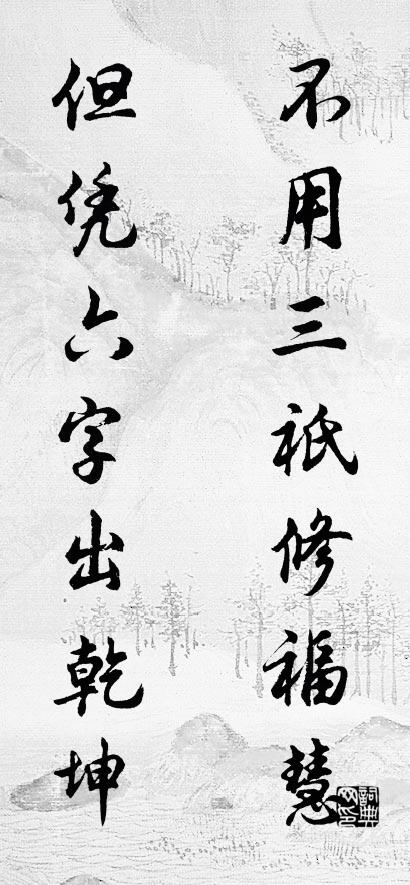 不用三祇修福慧
但凭六字出乾坤